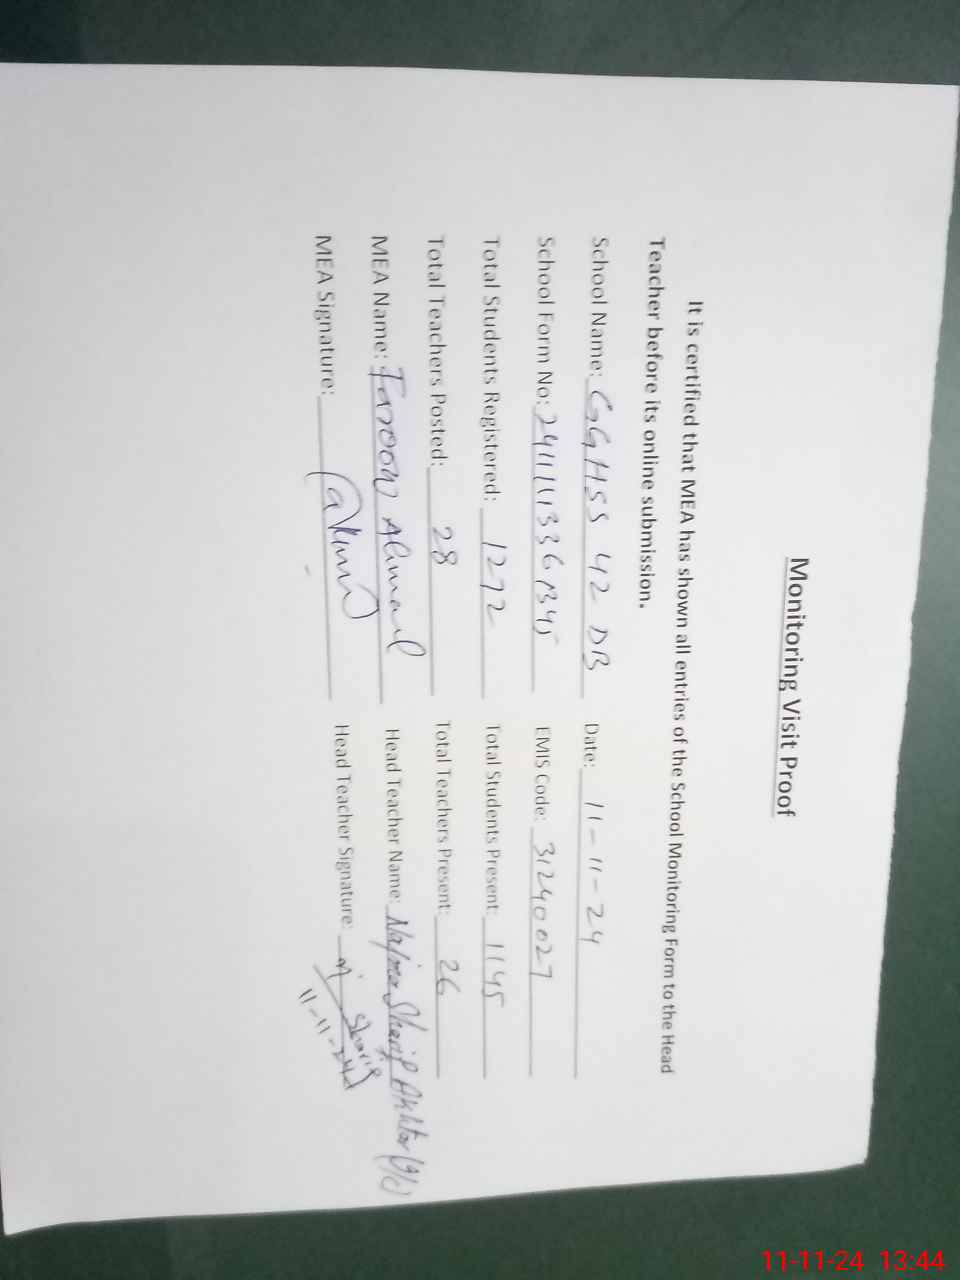 Monitoring Visit Proof
It is certified that MEA has shown all entries of the School Monitoring Form to the Head
Teacher before its online submission.
School Name: GGHSS 42 DB Date: 11-11-24
School Form No: EMIS Code: 31240027
Total Students Registered: 1272 Total Students Present: 1145
Total Teachers Posted: 28 Total Teachers Present: 26
MEA Name: Farooq Ahmad Head Teacher Name: Sharif Akhtar (I/C)
MEA Signature: Head Teacher Signature: Sharif
11-11-24
11-11-24 13:44